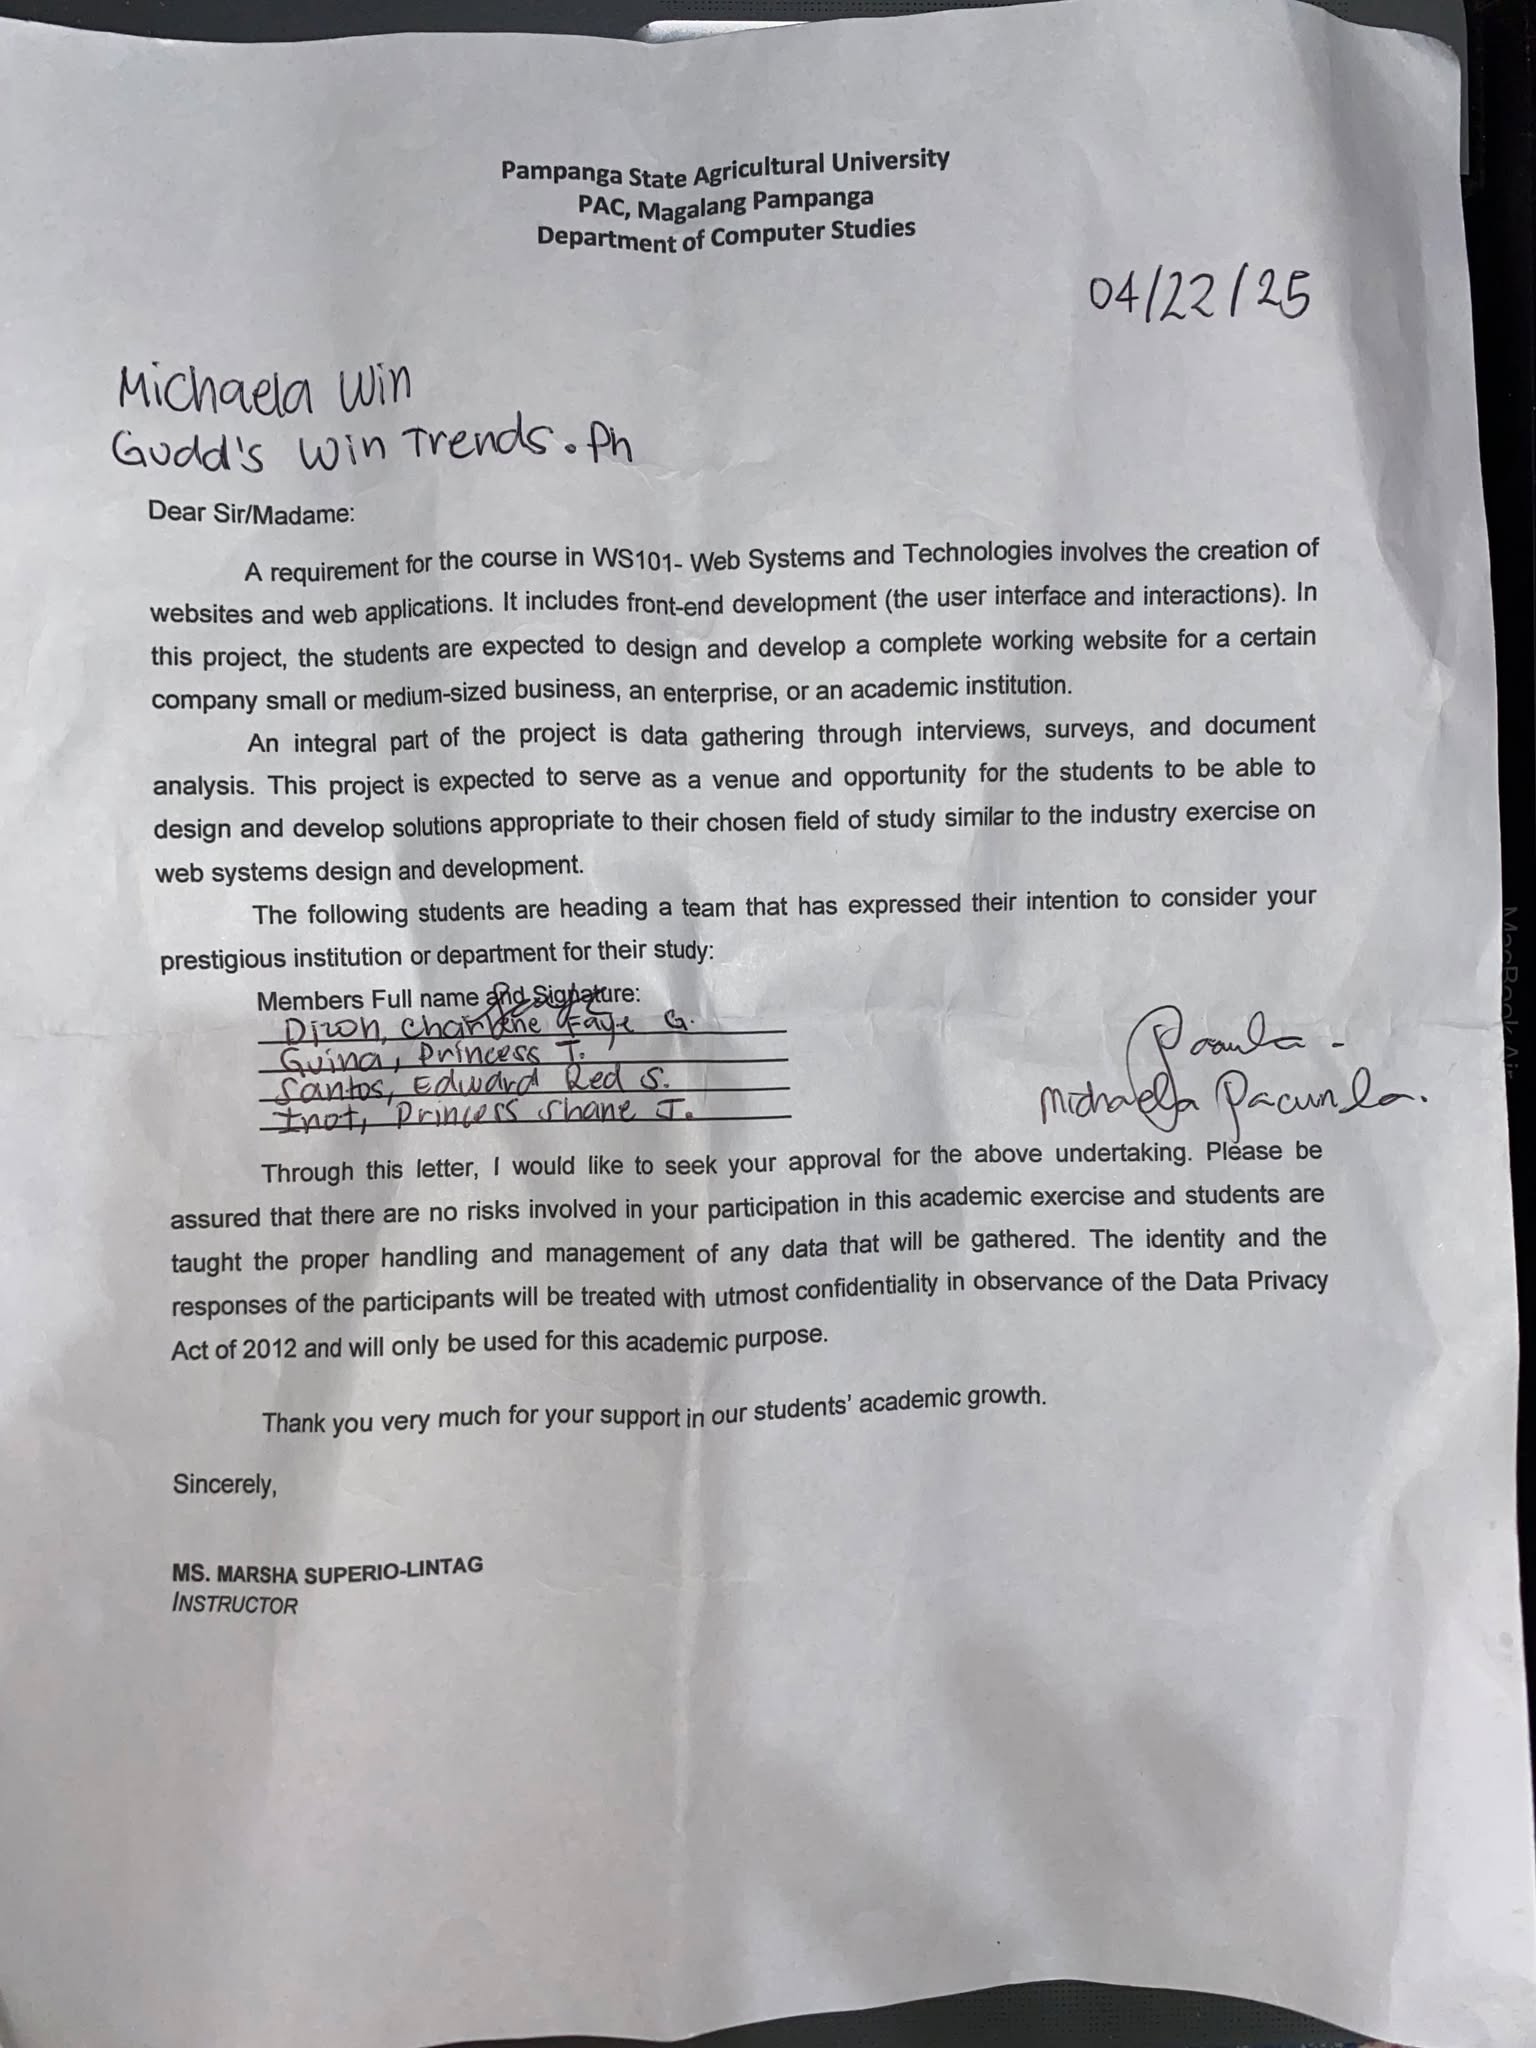 Pampanga State Agricultural University
PAC, Magalang Pampanga
Department of Computer Studies
04/22/25
Michaela Win
Gudd's Win Trends.Ph
Dear Sir/Madame:
A requirement for the course in WS101- Web Systems and Technologies involves the creation of
websites and web applications. It includes front-end development (the user interface and interactions). In
this project, the students are expected to design and develop a complete working website for a certain
company small or medium-sized business, an enterprise, or an academic institution.
An integral part of the project is data gathering through interviews, surveys, and document
analysis. This project is expected to serve as a venue and opportunity for the students to be able to
design and develop solutions appropriate to their chosen field of study similar to the industry exercise on
web systems design and development.
The following students are heading a team that has expressed their intention to consider your
prestigious institution or department for their study:
Members Full name and Signature:
Dizon, Charlene Faye G.
Guina, Princess T.
Santos, Edward Red S.
Inot, Princess Shane J.
Michaella Pacunla.
Through this letter, I would like to seek your approval for the above undertaking. Please be
assured that there are no risks involved in your participation in this academic exercise and students are
taught the proper handling and management of any data that will be gathered. The identity and the
responses of the participants will be treated with utmost confidentiality in observance of the Data Privacy
Act of 2012 and will only be used for this academic purpose.
Thank you very much for your support in our students' academic growth.
Sincerely,
MS. MARSHA SUPERIO-LINTAG
INSTRUCTOR
MacBook Air